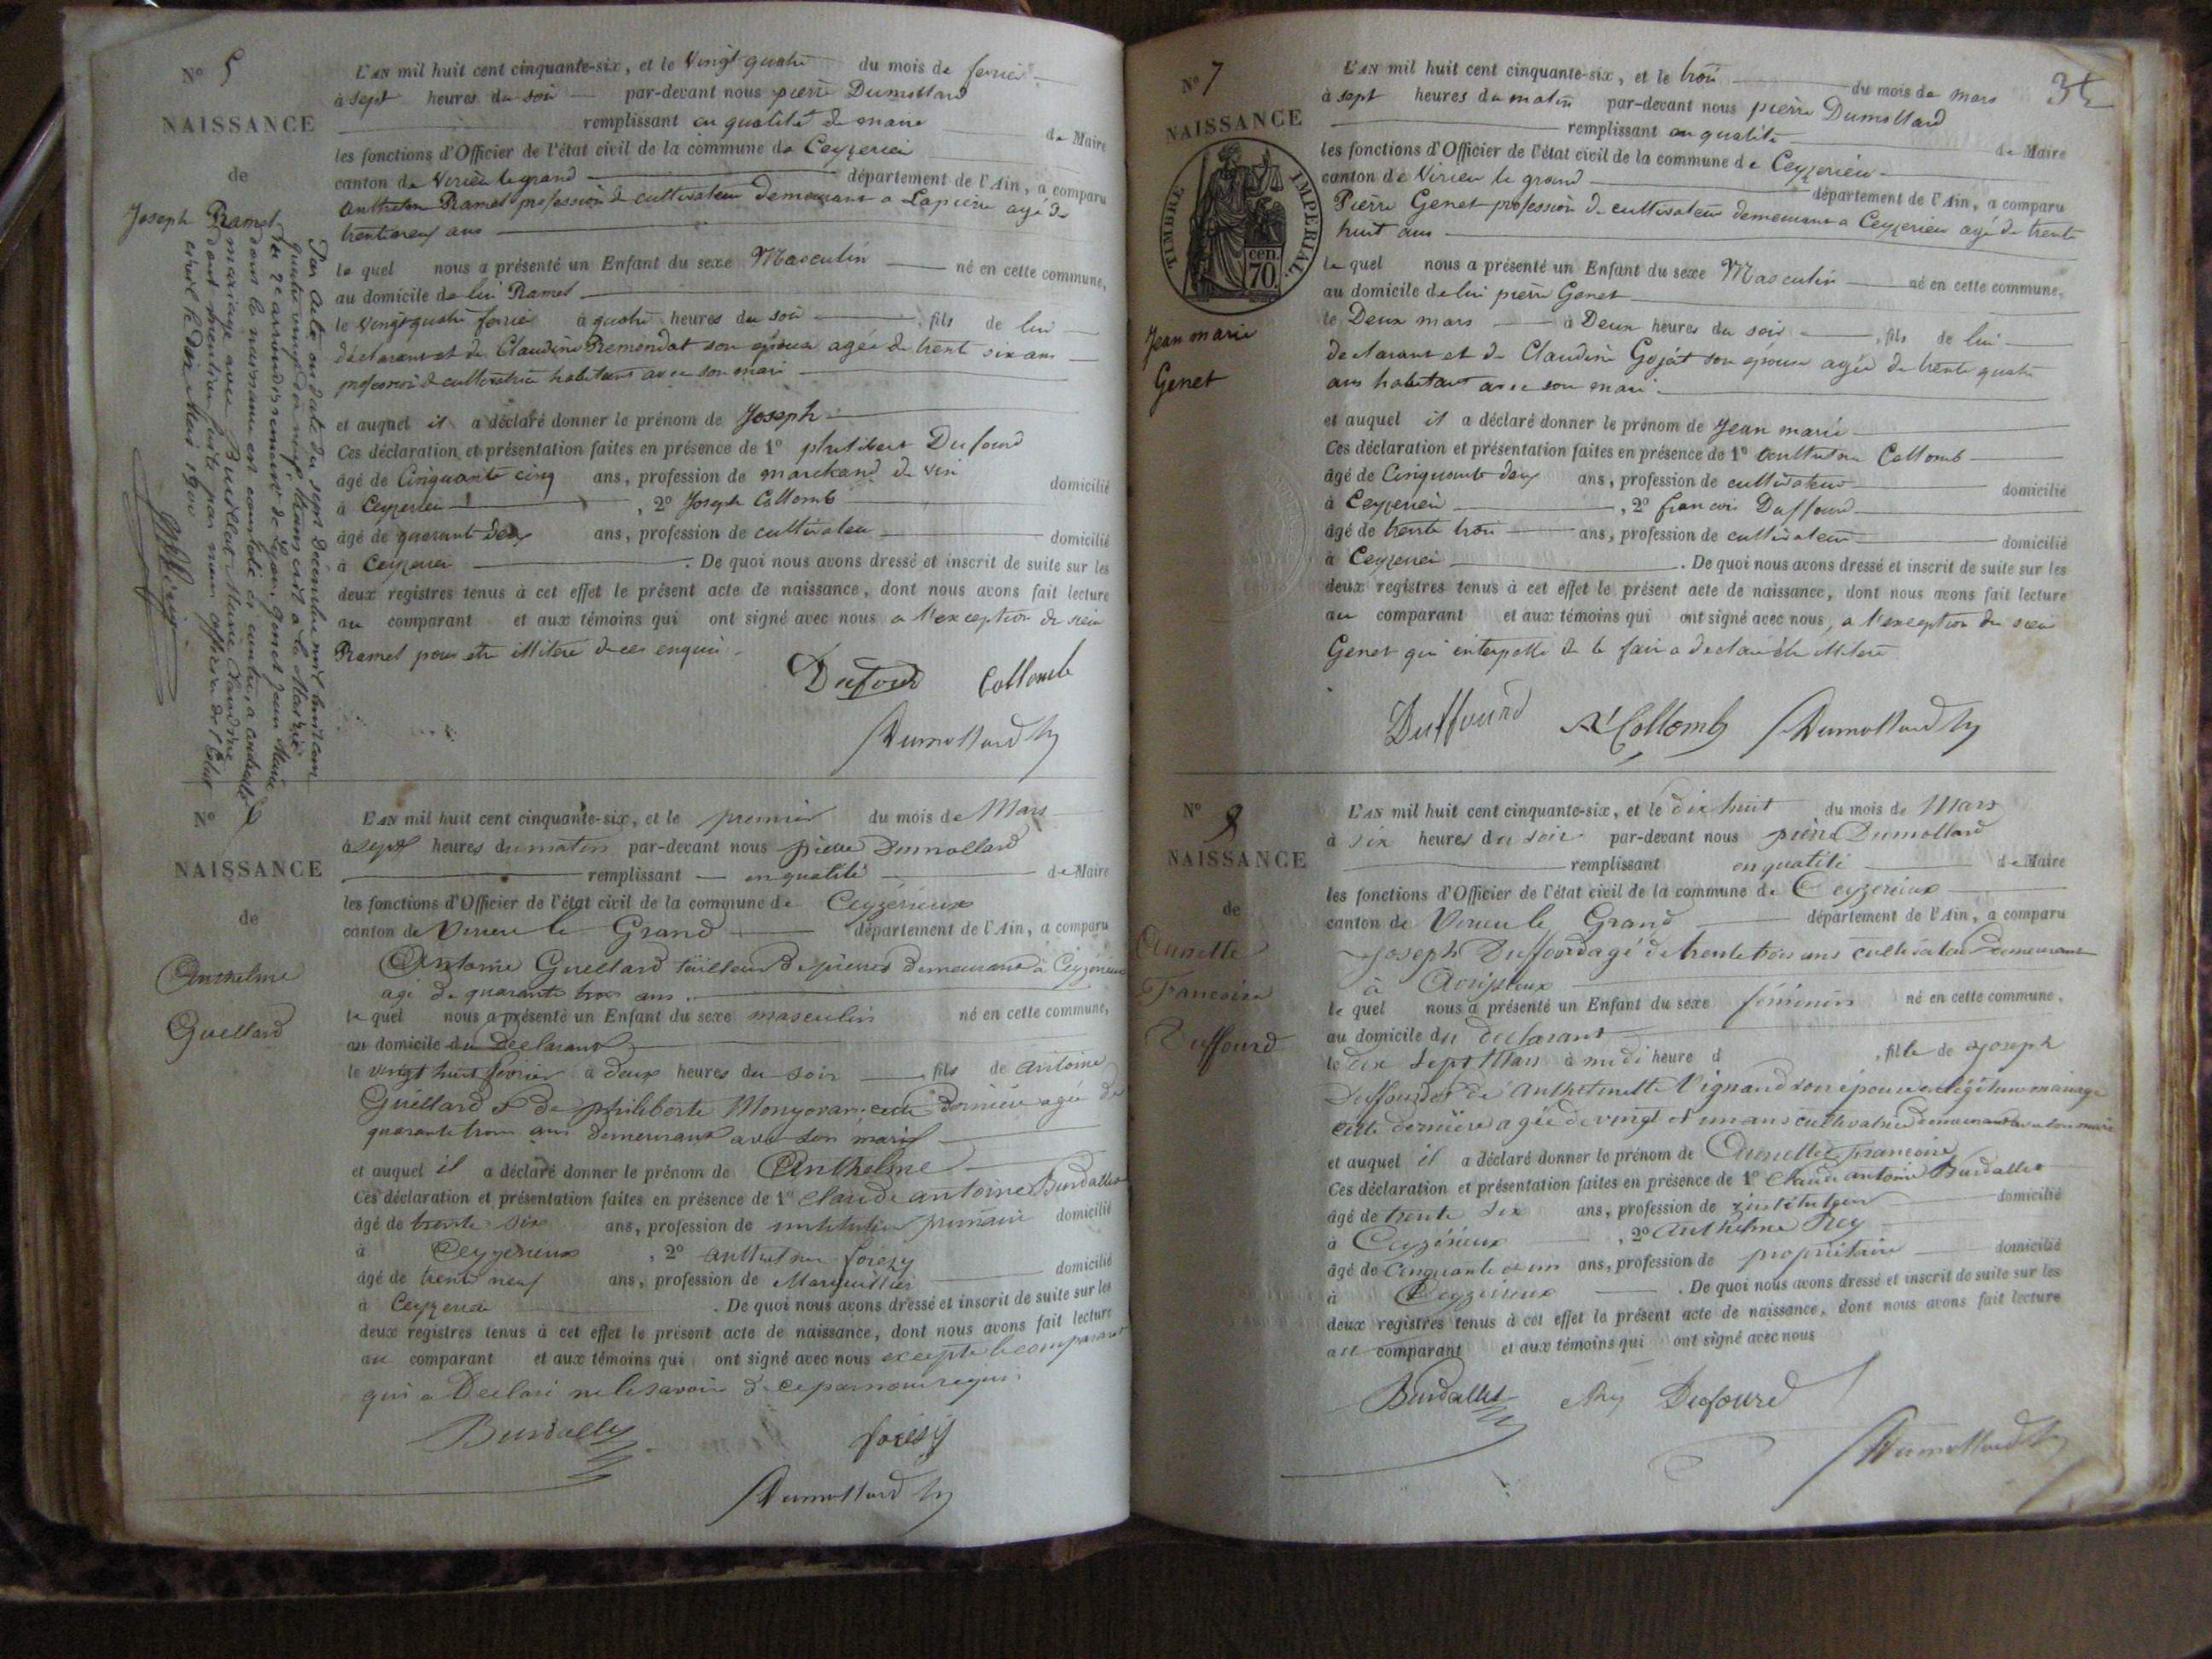 N° 5
NAISSANCE
de
Joseph Ramel
L'AN mil huit cent cinquante-six, et le Vingt quatre du mois de fevrier
à sept heures du soir par-devant nous pierre Dumollard
remplissant en qualité de maire de Maire
les fonctions d'Officier de l'état civil de la commune de Ceyzerieu
canton de Virieu le grand département de l'Ain, a comparu
Anthelme Ramel profession de cultivateur demeurant a Lapierre agé de
trente neuf ans
le quel nous a présenté un Enfant du sexe Masculin né en cette commune,
au domicile de lui Ramel
le vingt quatre fevrier à quatre heures du soir , fils de lui
déclarant et de Claudine Remondat son épouse agée de trente six ans
profession de cultivatrice habitant avec son mari
et auquel il a déclaré donner le prénom de Joseph
Ces déclaration et présentation faites en présence de 1° philibert Dufourd
âgé de Cinquante cinq ans, profession de marchand de vin domicilié
à Ceyzerieu , 2° Joseph Collomb
âgé de quarante deux ans, profession de cultivateur domicilié
à Ceyzerieu . De quoi nous avons dressé et inscrit de suite sur les
deux registres tenus à cet effet le présent acte de naissance, dont nous avons fait lecture
au comparant et aux témoins qui ont signé avec nous a l'exception du sieur
Ramel pour etre illiteré de ces enquis
Dufourd Collomb
Dumollard
Par acte en date du sept Décembre mil huit cent
quatre vingt dix neuf, transcrit a la Mairie
du 2e arrondissement de Lyon, genet jean Marie
dont la naissance est constatée ci contre, a contracté
mariage avec Guillot Marie
dont mention faite par nous officier de l'Etat
civil le dix Mars 1900
N° 6
NAISSANCE
de
Anthelme
Guellard
L'AN mil huit cent cinquante-six, et le premier du mois de Mars
à sept heures du matin par-devant nous pierre Dumollard
remplissant en qualité de Maire
les fonctions d'Officier de l'état civil de la commune de Ceyzérieux
canton de Virieu le Grand département de l'Ain, a comparu
Antoine Guellard tailleur de pierres demeurant à Ceyzérieux
agé de quarante trois ans.
le quel nous a présenté un Enfant du sexe masculin né en cette commune,
au domicile du Déclarant
le vingt huit fevrier à deux heures du soir , fils de antoine
Guellard & de philiberte cette dernière agée de
quarante trois ans demeurant avec son mari
et auquel il a déclaré donner le prénom de Anthelme
Ces déclaration et présentation faites en présence de 1° Claude antoine Burdallet
âgé de trente six ans, profession de instituteur primaire domicilié
à Ceyzérieux , 2° anthelme forezy
âgé de trente neuf ans, profession de Marguillier domicilié
à Ceyzerieu . De quoi nous avons dressé et inscrit de suite sur les
deux registres tenus à cet effet le présent acte de naissance, dont nous avons fait lecture
au comparant et aux témoins qui ont signé avec nous excepté le comparant
qui a Déclaré ne le savoir de ce par nous requis
Burdallet forezy
Dumollard
35
N° 7
NAISSANCE
TIMBRE IMPERIAL.
70 cen.
Jean marie
Genet
L'AN mil huit cent cinquante-six, et le trois du mois de mars
à sept heures du matin par-devant nous pierre Dumollard
remplissant en qualité de Maire
les fonctions d'Officier de l'état civil de la commune de Ceyzerieu
canton de Virieu le grand département de l'Ain, a comparu
Pierre Genet profession de cultivateur demeurant a Ceyzerieu agé de trente
huit ans
le quel nous a présenté un Enfant du sexe Masculin né en cette commune,
au domicile de lui pierre Genet
le Deux mars à Deux heures du soir , fils de lui
declarant et de Claudine Gojat son epouse agée de trente quatre
ans habitant avec son mari
et auquel il a déclaré donner le prénom de Jean marie
Ces déclaration et présentation faites en présence de 1° anthelme Collomb
âgé de Cinquante deux ans, profession de cultivateur domicilié
à Ceyzerieu , 2° francois Duffourd
âgé de trente trois ans, profession de cultivateur domicilié
à Ceyzerieu . De quoi nous avons dressé et inscrit de suite sur les
deux registres tenus à cet effet le présent acte de naissance, dont nous avons fait lecture
au comparant et aux témoins qui ont signé avec nous, a l'exception du sieur
Genet qui interpellé de le faire a declaré etre illiteré
Duffourd A Collomb Dumollard
N° 8
NAISSANCE
de
Annette
Francoise
Duffourd
L'AN mil huit cent cinquante-six, et le dix huit du mois de Mars
à six heures du soir par-devant nous pierre Dumollard
remplissant en qualité de Maire
les fonctions d'Officier de l'état civil de la commune de Ceyzérieux
canton de Virieu le Grand département de l'Ain, a comparu
Joseph Duffourd agé de trente trois ans cultivateur demeurant
à Avrissieux
le quel nous a présenté un Enfant du sexe féminin né en cette commune,
au domicile du declarant
le dix sept Mars à midi heure d , fille de Joseph
Duffourd et de Anthelmette Vignand son épouse en légitime mariage
cette dernière agée de vingt et un ans cultivatrice demeurant avec son mari
et auquel il a déclaré donner le prénom de Annette francoise
Ces déclaration et présentation faites en présence de 1° Claude antoine Burdallet
âgé de trente six ans, profession de instituteur domicilié
à Ceyzérieux , 2° Anthelme Rey
âgé de Cinquante et un ans, profession de propriétaire domicilié
à Ceyzérieux . De quoi nous avons dressé et inscrit de suite sur les
deux registres tenus à cet effet le présent acte de naissance, dont nous avons fait lecture
au comparant et aux témoins qui ont signé avec nous
Burdallet Rey Dufourd
Dumollard